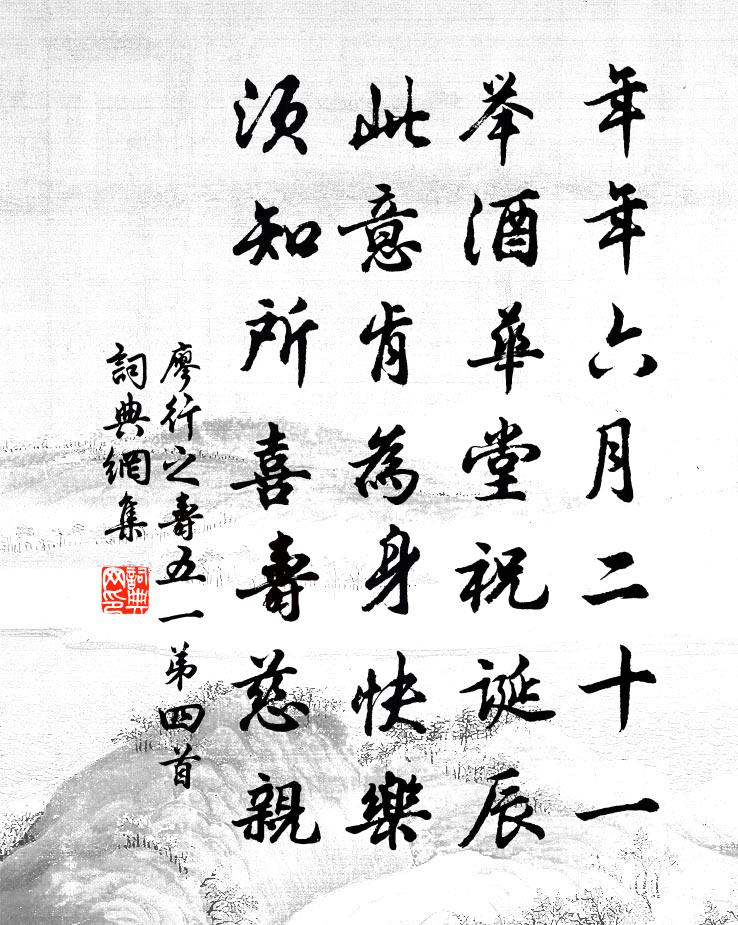 年年六月二十一
举酒華堂祝誕辰
此意肯為身快樂
須知所喜壽慈親
廖行之壽五一第四首
詞典網集
詞典網印